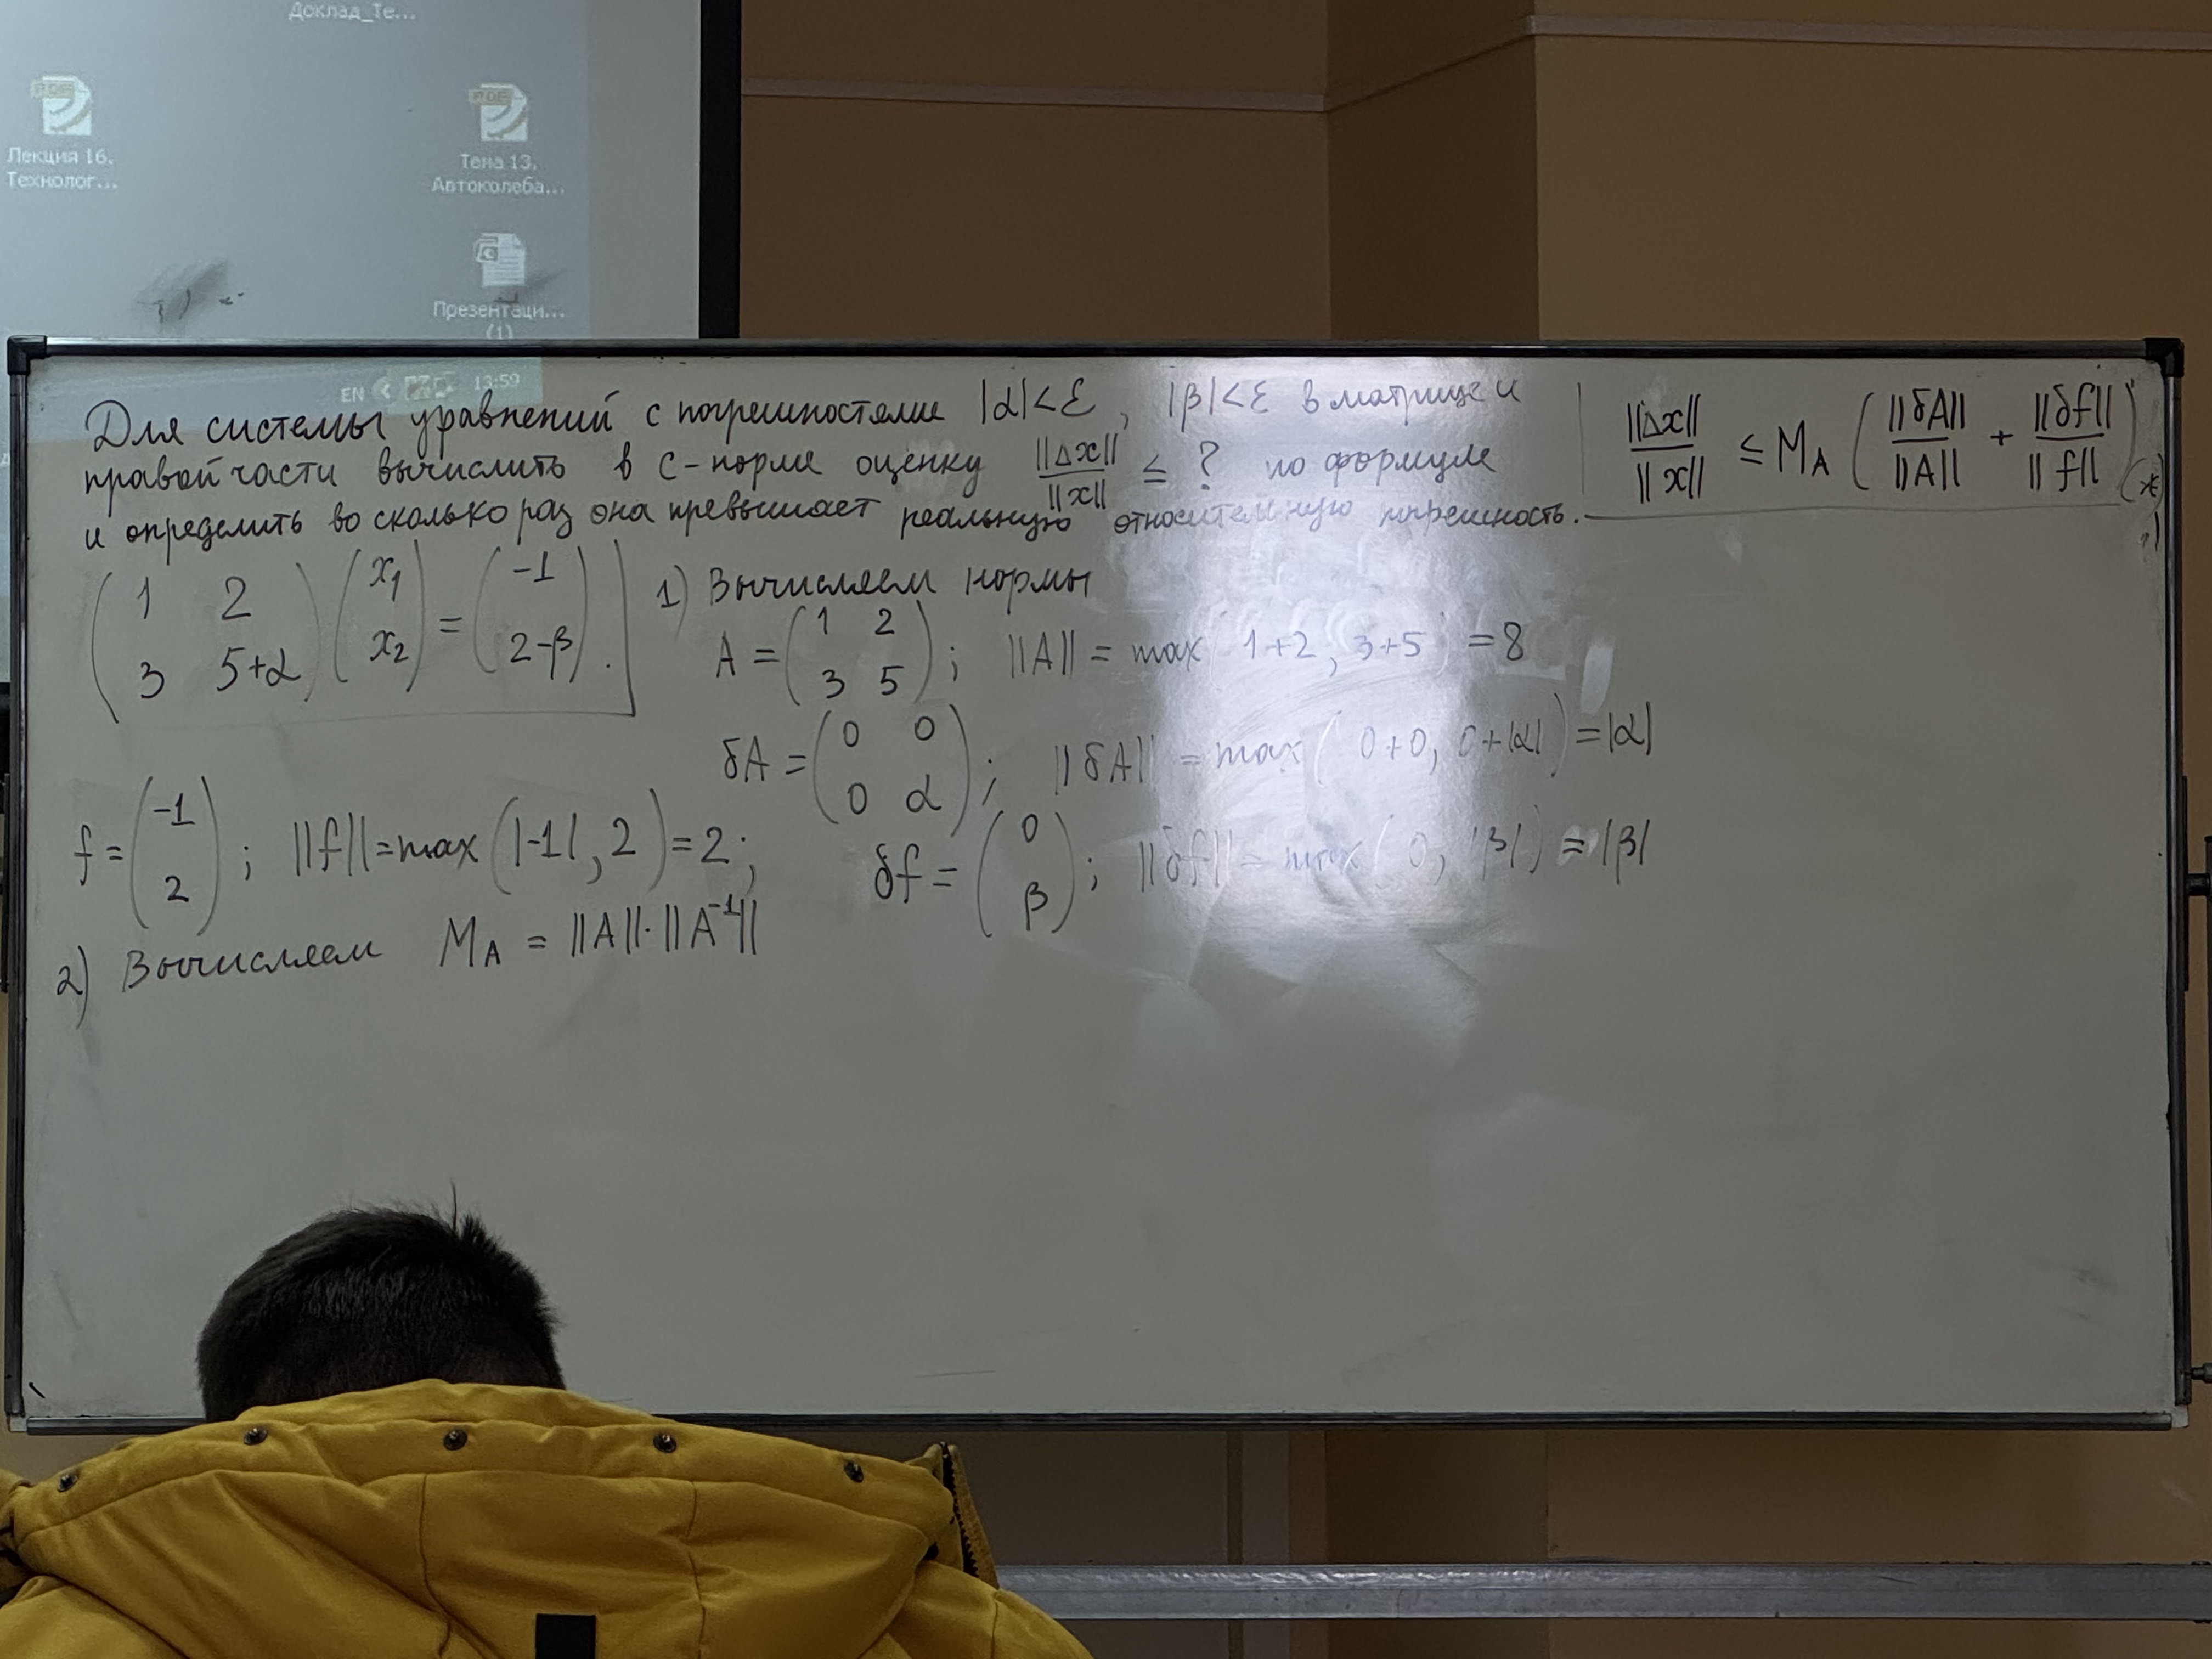 Доклад_Те...
Лекция 16.
Технолог...
Тема 13.
Автоколеба...
Презентаци...
(1)
EN 13:59
Для системы уравнений с погрешностями |α|<ε, |β|<ε в матрице и
правой части вычислить в C-норме оценку ||Δx||/||x|| ≤ ? по формуле
и определить во сколько раз она превышает реальную относительную погрешность.
||Δx||/||x|| ≤ M_A (||δA||/||A|| + ||δf||/||f||) (*)
(1 2; 3 5+α) (x₁; x₂) = (-1; 2-β).
1) Вычисляем нормы
A = (1 2; 3 5); ||A|| = max(1+2, 3+5) = 8
δA = (0 0; 0 α); ||δA|| = max(0+0, 0+|α|) = |α|
f = (-1; 2); ||f|| = max(|-1|, 2) = 2; δf = (0; β); ||δf|| = max(0, |β|) = |β|
2) Вычисляем M_A = ||A||·||A⁻¹||